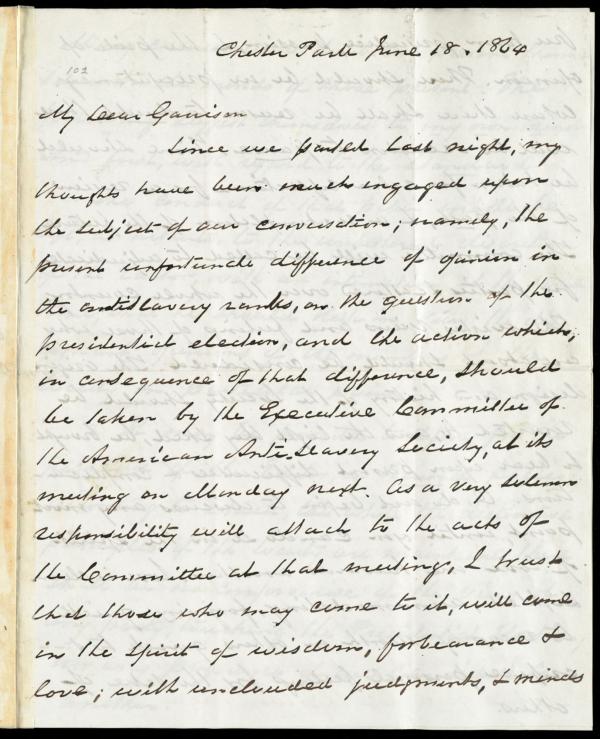 Chester Park June 18. 1864
102
My Dear Garrison
Since we parted last night, my
thoughts have been much engaged upon
the subject of our conversation; namely, the
present unfortunate difference of opinion in
the antislavery ranks, on the question of the
presidential election, and the action which,
in consequence of that difference, should
be taken by the Executive Committee of
the American Anti-Slavery Society, at its
meeting on Monday next. As a very solemn
responsibility will attach to the acts of
the Committee at that meeting, I trust
that those who may come to it, will come
in the spirit of wisdom, forbearance &
love; with unclouded judgments, & minds